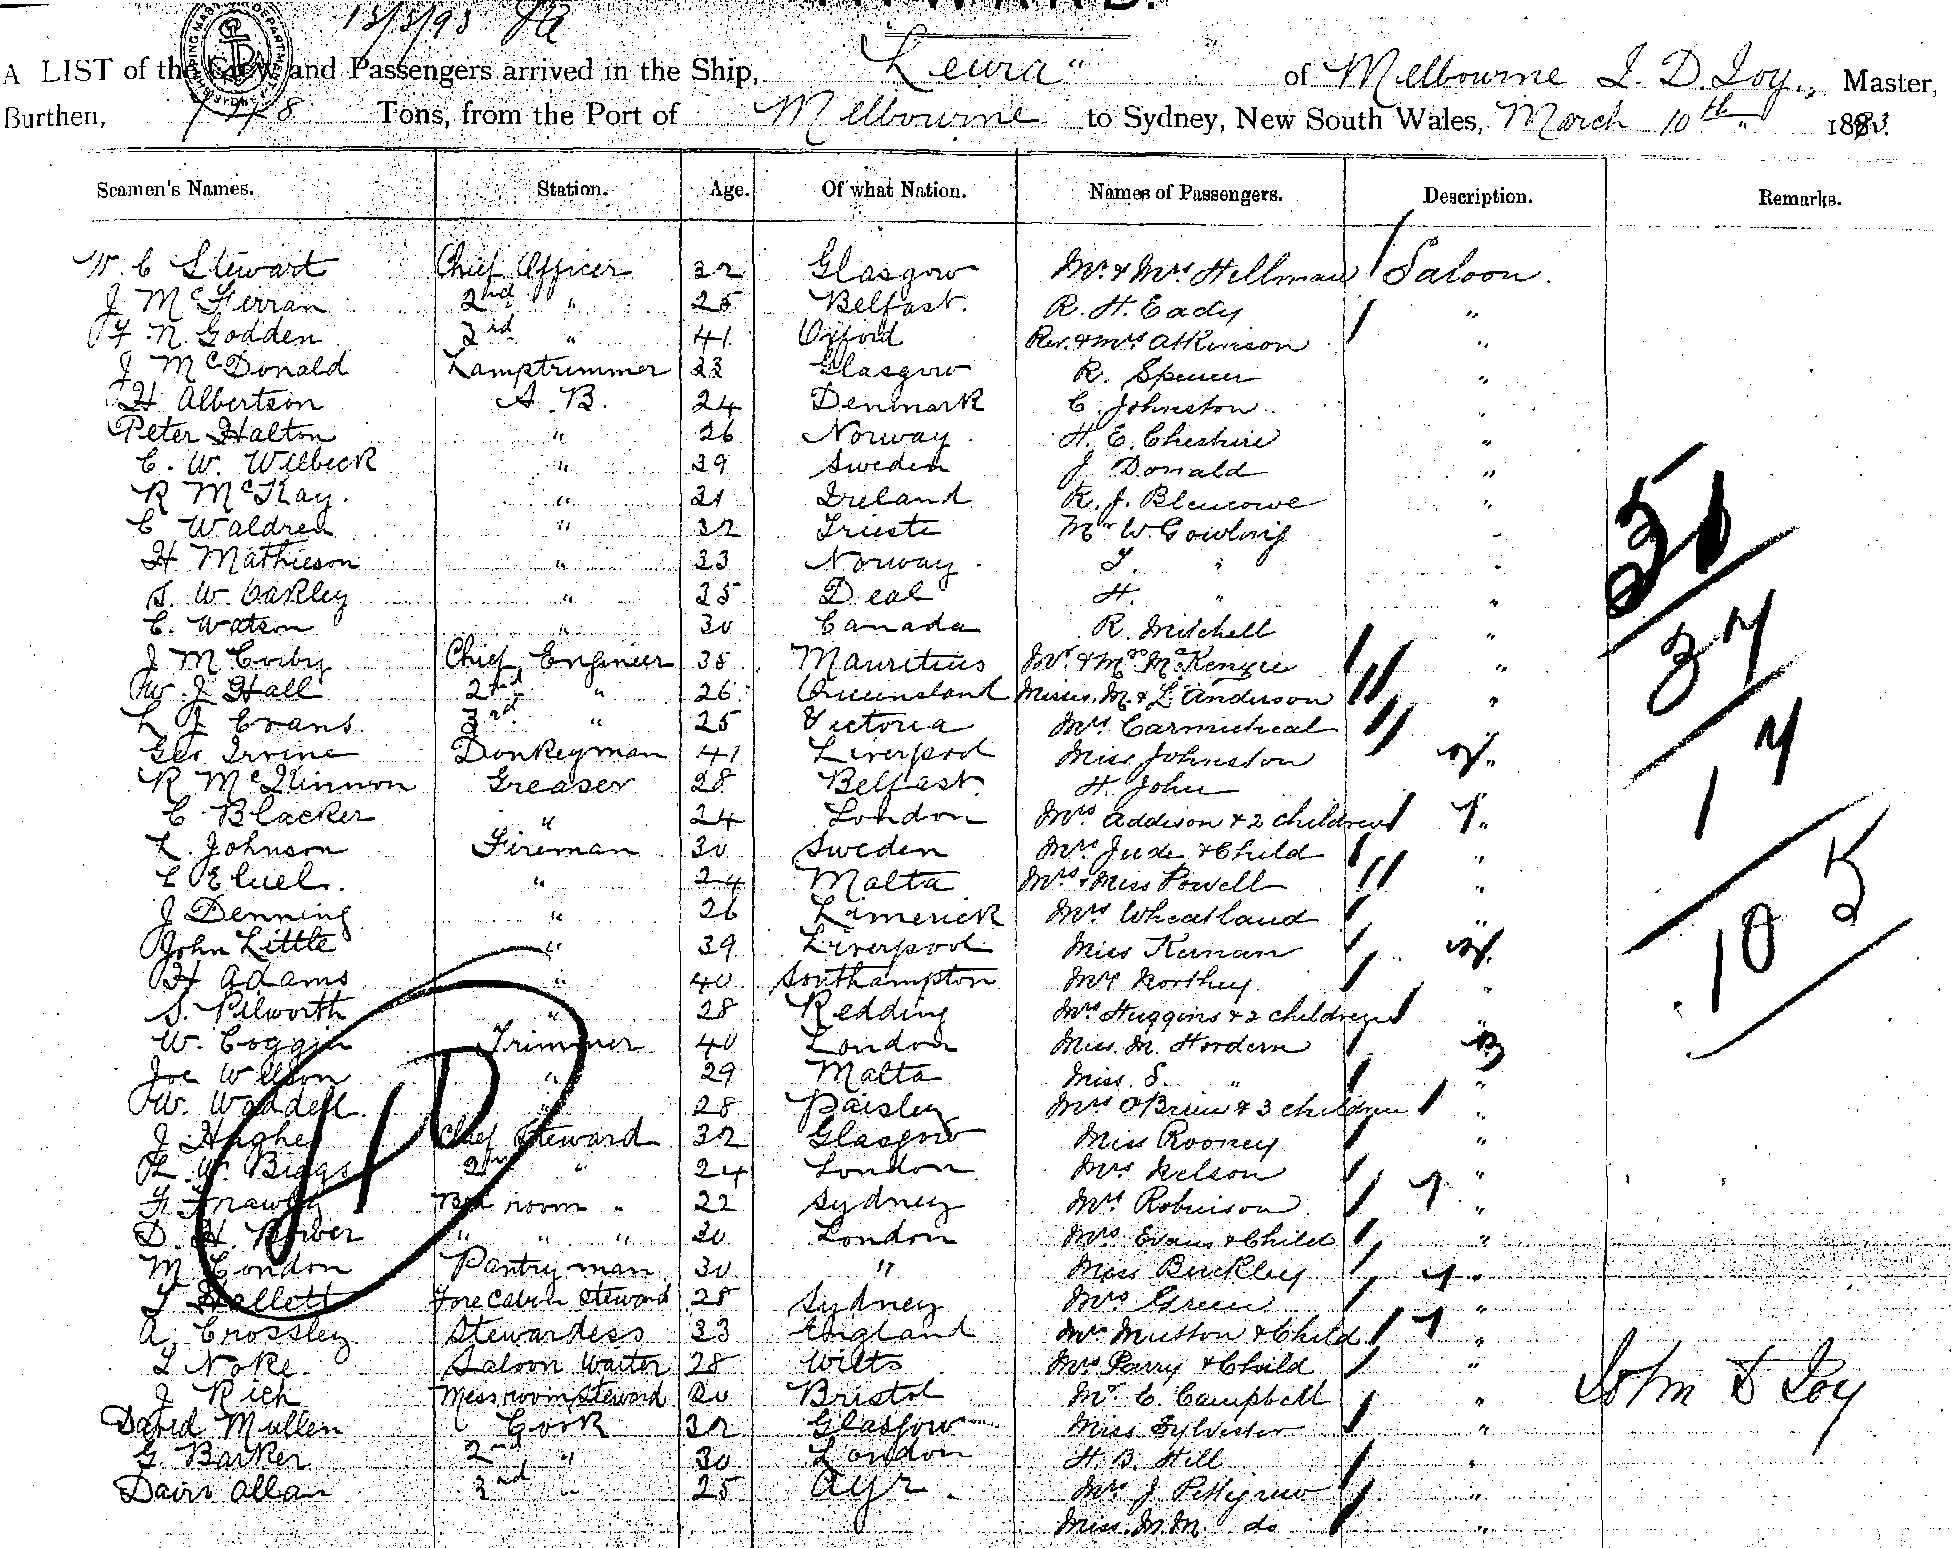 13/3/93
A LIST of the Crew and Passengers arrived in the Ship, "Leura" of Melbourne J. D. Joy, Master,
Burthen, Tons, from the Port of Melbourne to Sydney, New South Wales, March 10th 1893.
Seamen's Names. Station. Age. Of what Nation. Names of Passengers. Description. Remarks.
W. C Stewart Chief Officer 32 Glasgow Mr & Mrs Hellman Saloon.
J McFerran 2nd " 25 Belfast. R. H. Eady "
F. N. Godden 3rd " 41 Oxford Rev. & Mrs Atkinson "
J McDonald Lamptrimmer 23 Glasgow R. Spencer "
H Albertson A. B. 24 Denmark C. Johnston "
Peter Halton " 26 Norway H. E. Cheshire "
C. W. Wilbeck " 29 Sweden J Donald "
R McKay. " 21 Ireland R. J. Blencowe "
C Waldren " 32 Trieste Mr W. Gowling "
H Mathieson " 33 Norway T. " "
S. W. Oakley " 25 Deal H. " "
C. Watson " 30 Canada R. Mitchell "
J M Corby Chief Engineer 35 Mauritius Mr & Mrs McKenzie "
W. J Hall 2nd " 26 Queensland Misses. M. & L. Anderson "
L J Evans 3rd " 25 Victoria Mrs Carmichael
Geo Irvine Donkeyman 41 Liverpool Miss Johnston "
R McKinnon Greaser 28 Belfast. H. John
C Blacker " 24 London Mrs Addison & 2 children "
L. Johnson Fireman 30 Sweden Mrs Jude & Child "
C " 24 Malta Mrs & Miss Powell "
J Denning " 26 Limerick Mrs Wheatland "
John Little " 39 Liverpool Miss Kernan "
H Adams " 40 Southampton Mrs Northey "
S. Pilworth " 28 Redding Mrs Huggins & 2 children "
W. Coggin Trimmer 40 London Miss. M. Hordern "
Joe Wilson " 29 Malta Miss. S. " "
W. Waddell " 28 Paisley Mrs O'Brien & 3 children "
J Hughes Chief Steward 32 Glasgow Miss Rooney "
W. Biggs 2nd " 24 London Mrs Nelson "
F Bed room " 22 Sydney Mrs Robinson "
D. H. " " " 20 London Mrs Evans & Child "
M Condon Pantryman 30 " Miss Buckley "
T Hallett Forecabin Steward 28 Sydney Mrs Green "
A. Crossley Stewardess 33 England Mrs Mutton & Child "
T Noke. Saloon Waiter 28 Wilts Mrs Parry & Child "
J Rich Messroom Steward 20 Bristol Mr C. Campbell "
David Mullen Cook 32 Glasgow Miss Sylvester "
G. Barker 2nd " 30 London H. B. Hill "
David Allan 3rd " 25 Ayr. Mrs J Pettigrew "
Miss. M. M. do "
37
14
105
John D Joy